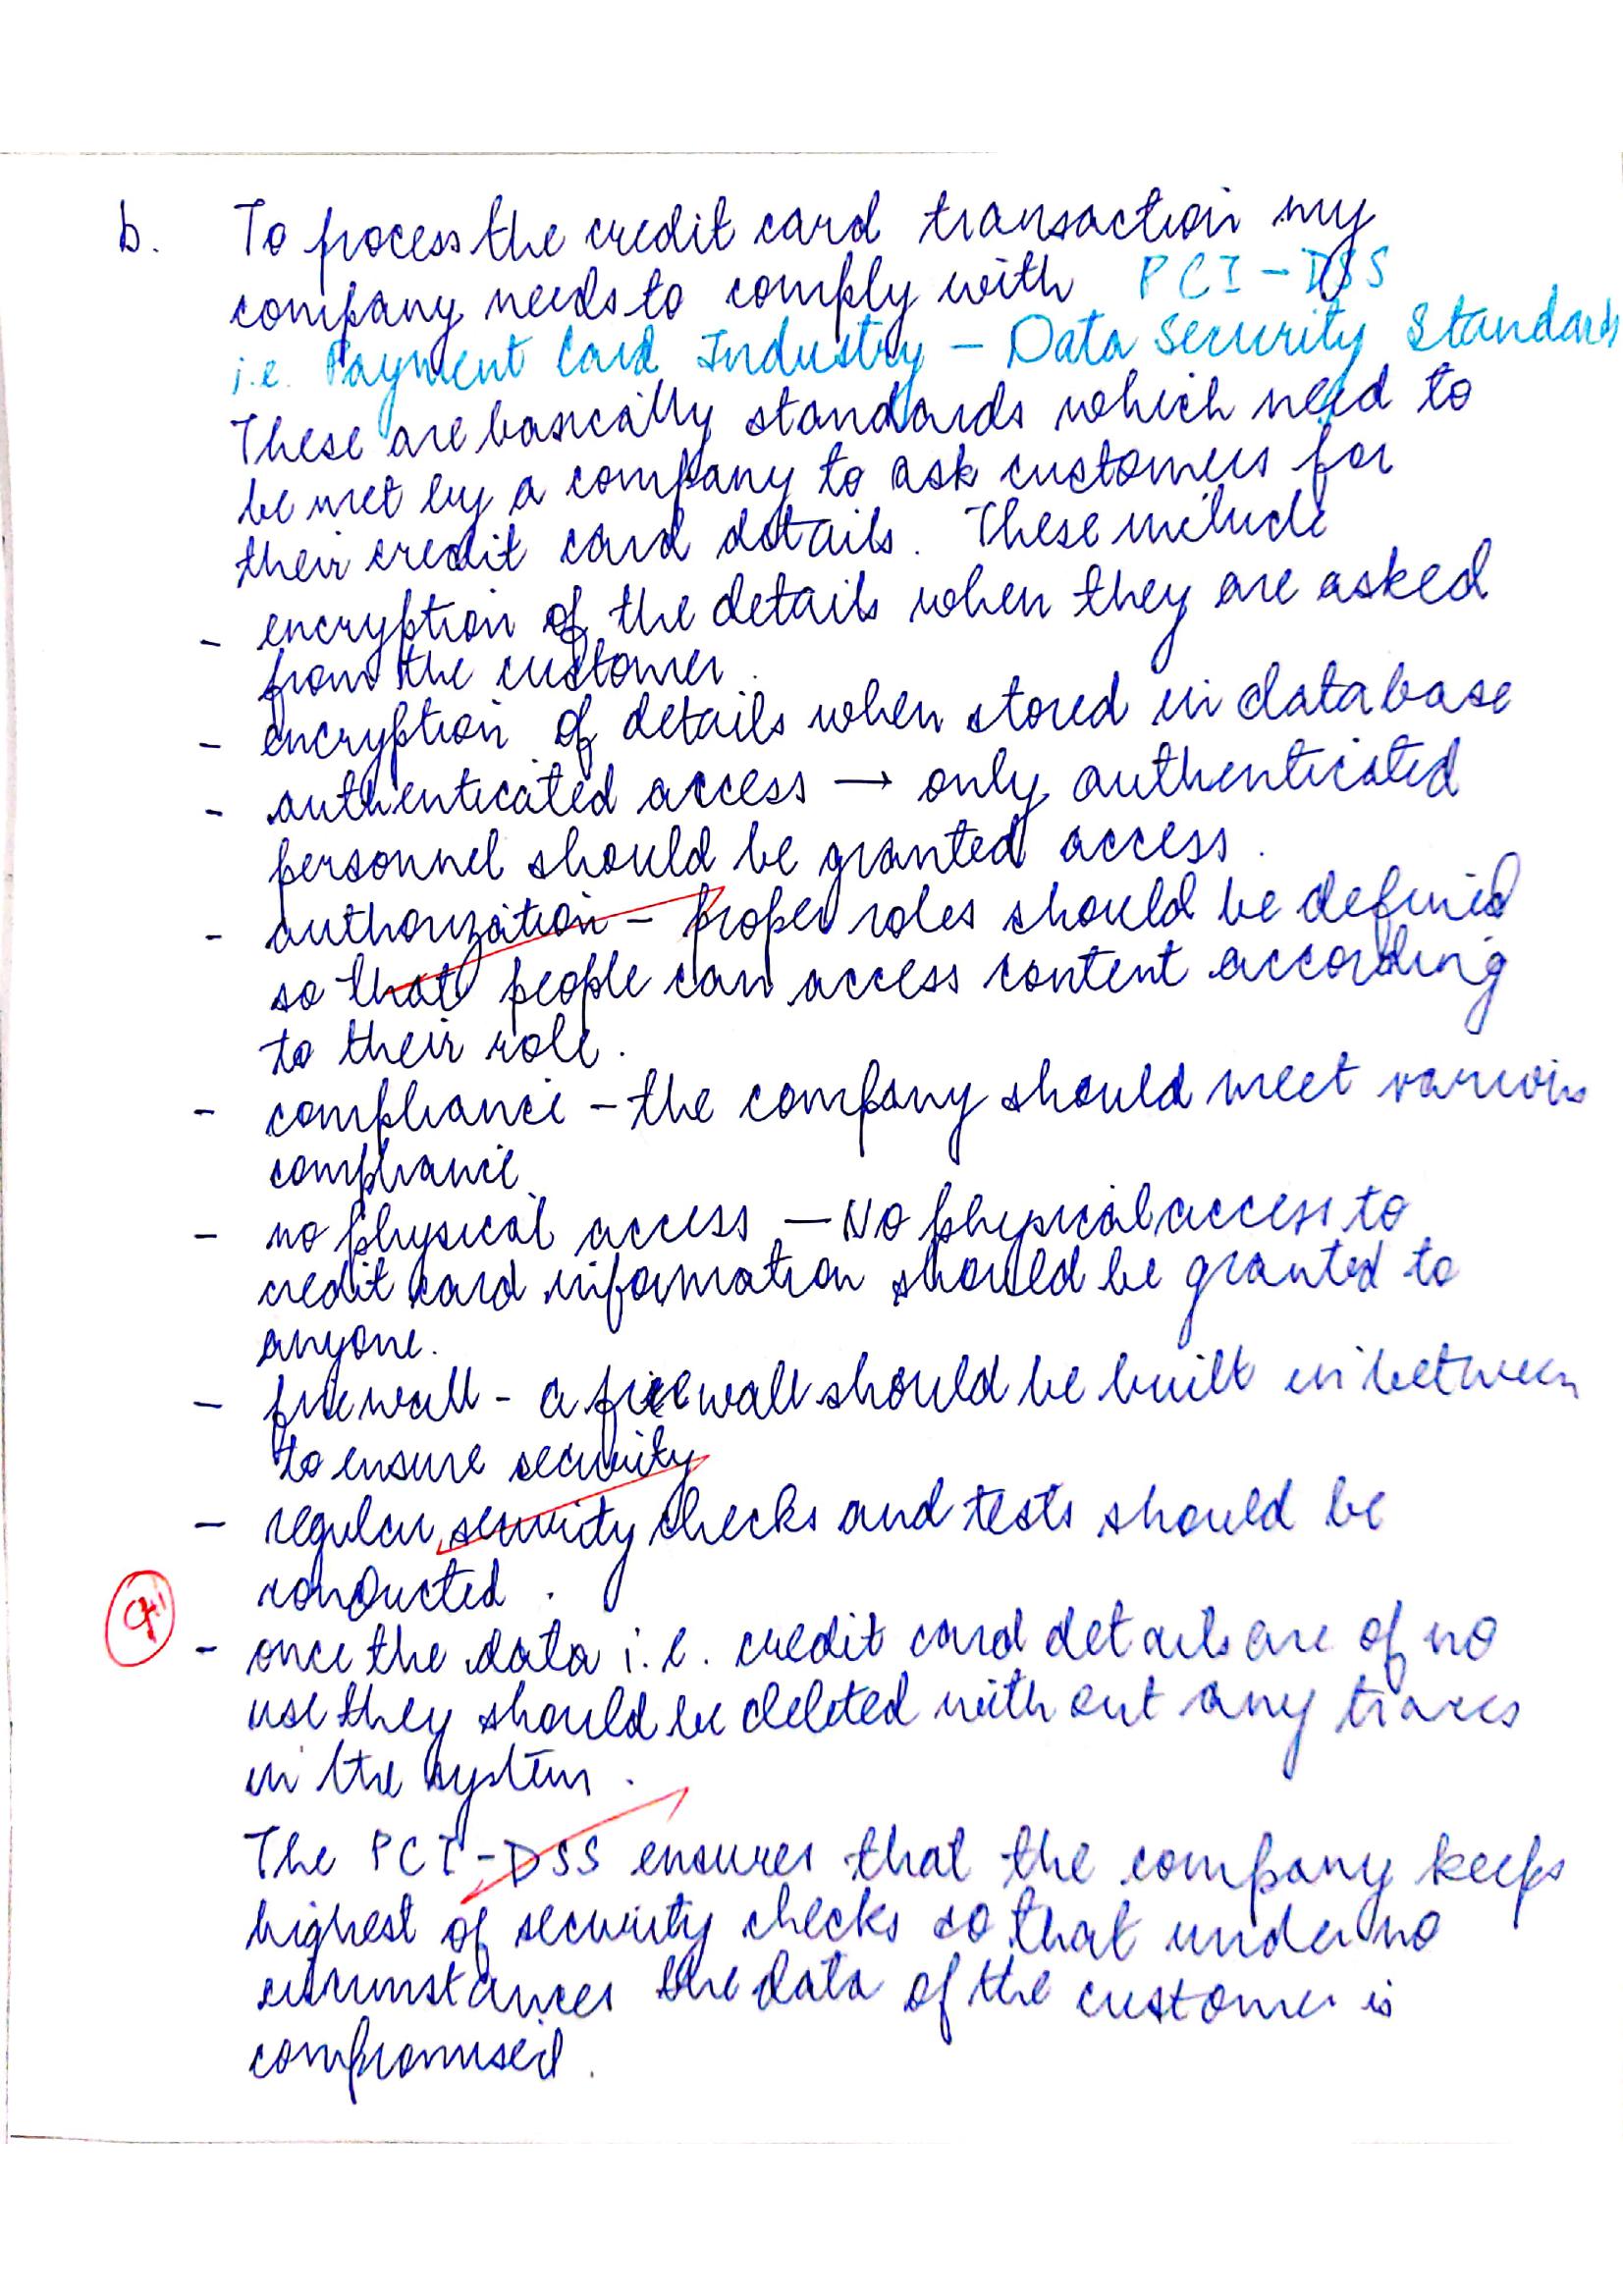 b. To process the credit card transaction my
company needs to comply with PCI-DSS
i.e. Payment Card Industry - Data Security Standards
These are basically standards which need to
be met by a company to ask customers for
their credit card details. These include
- encryption of the details when they are asked
from the customer.
- encryption of details when stored in database
- authenticated access → only authenticated
personnel should be granted access.
- authorization - proper roles should be defined
so that people can access content according
to their role.
- compliance - the company should meet various
compliance
- no physical access - No physical access to
credit card information should be granted to
anyone.
- firewall - a firewall should be built in between
to ensure security
- regular security checks and tests should be
conducted.
- once the data i.e. credit card details are of no
use they should be deleted without any traces
in the system.
The PCI-DSS ensures that the company keeps
highest of security checks so that under no
circumstances the data of the customer is
compromised.